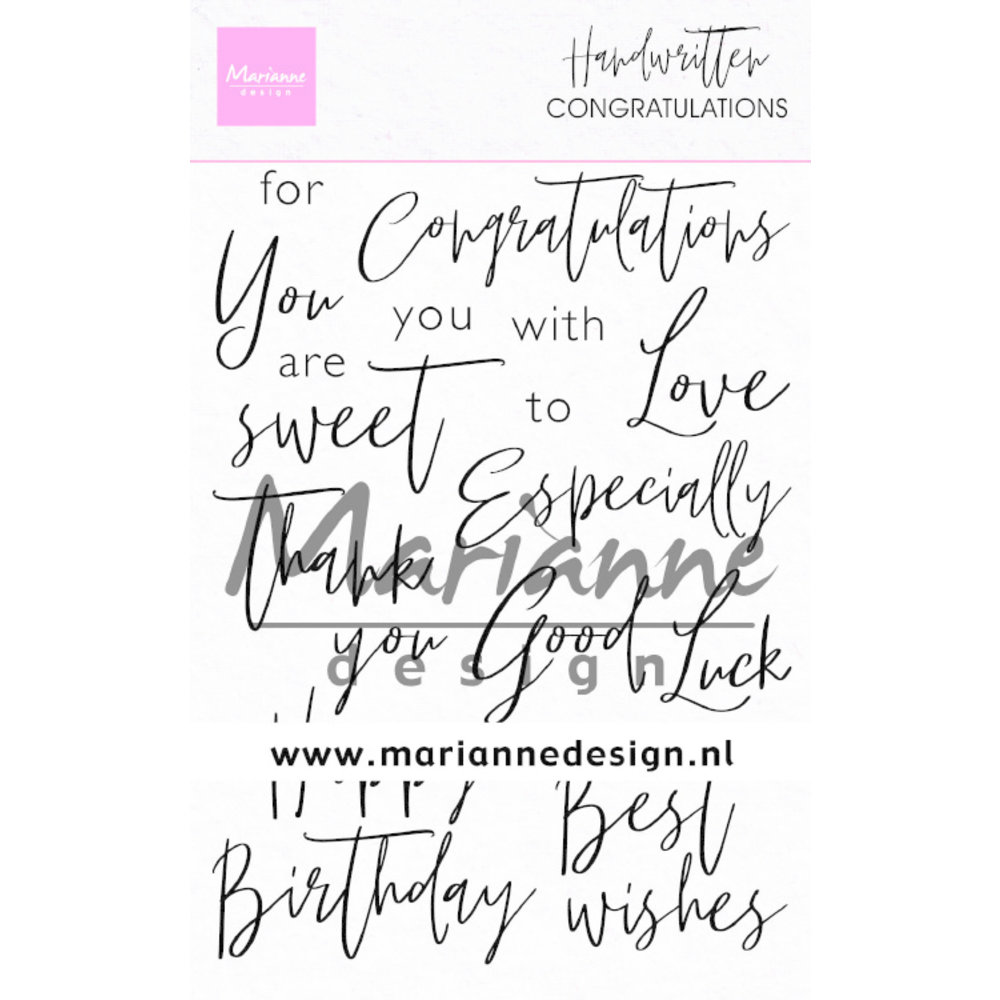 Marianne
design
Handwritten
CONGRATULATIONS
for
Congratulations
You
you with
are
Love
sweet
to
Especially
Marianne
Thank
you
Good
Luck
design
www.mariannedesign.nl
Happy
Best
Birthday
wishes